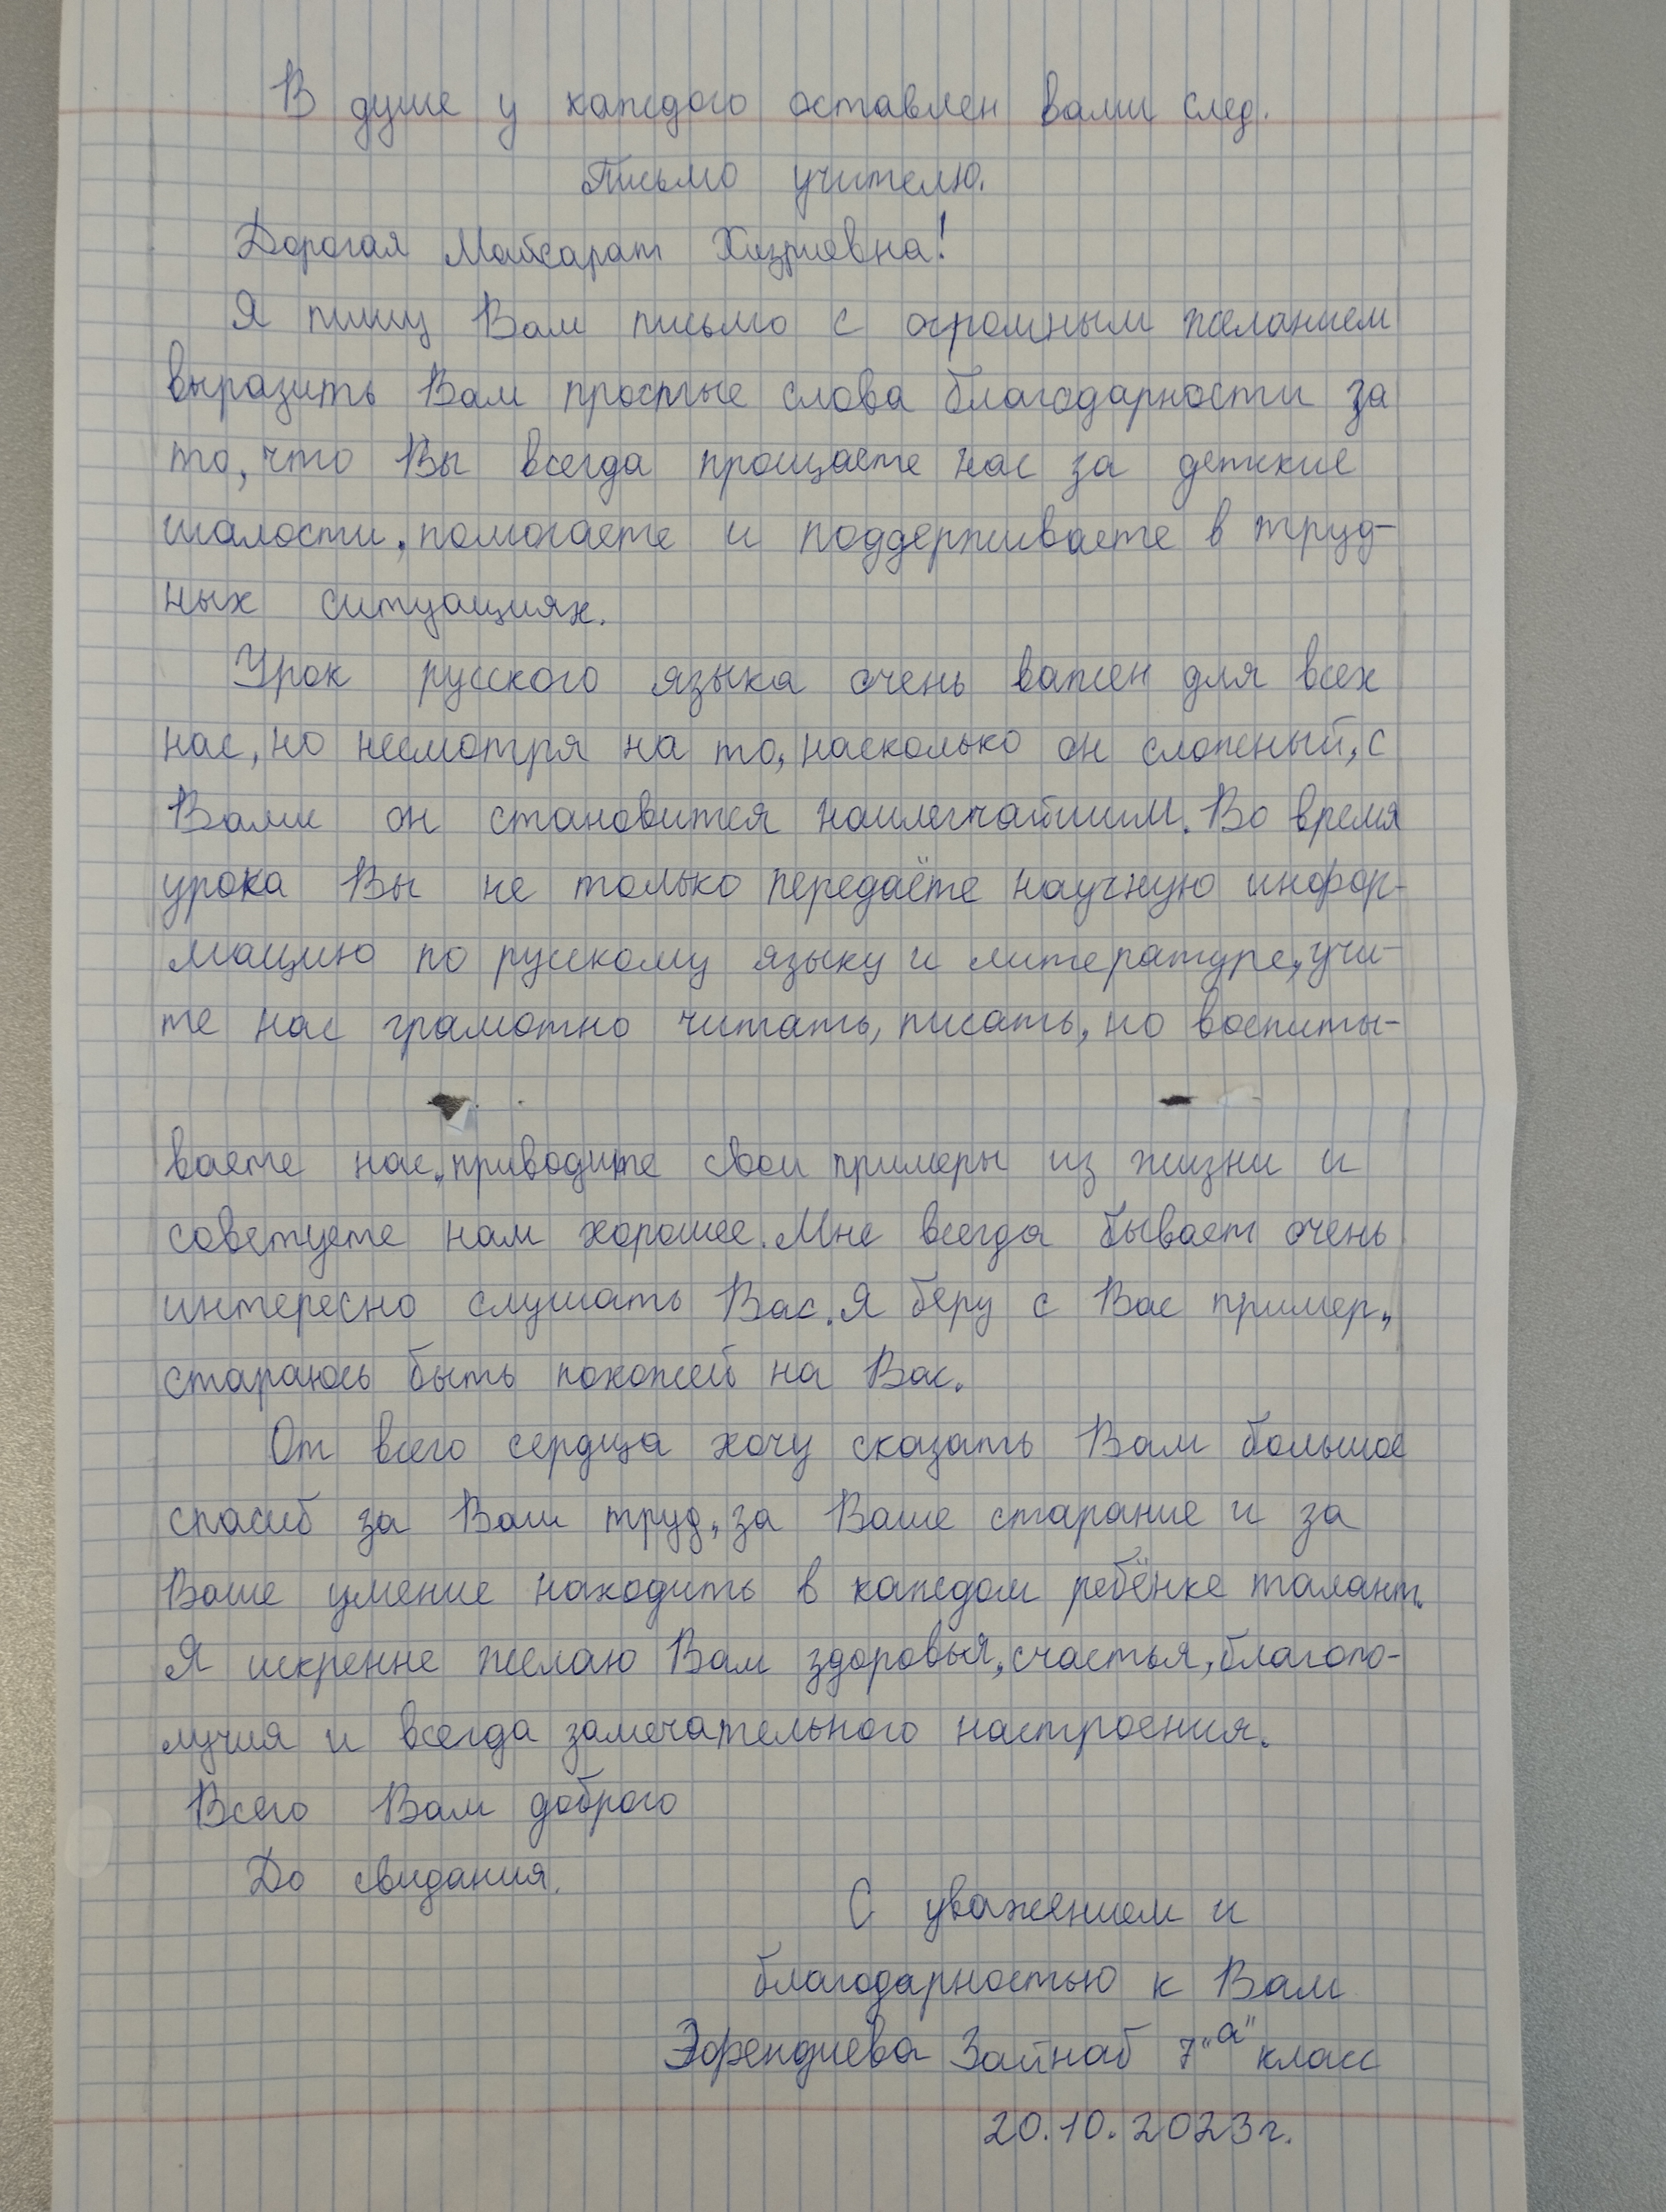 В душе у каждого оставлен вами след.
Письмо учителю.
Дорогая Майсарат Хизриевна!
Я пишу Вам письмо с огромным желанием
выразить Вам простые слова благодарности за
то, что Вы всегда прощаете нас за детские
шалости, помогаете и поддерживаете в труд-
ных ситуациях.
Урок русского языка очень важен для всех
нас, но несмотря на то, насколько он сложный, с
Вами он становится наилегчайшим. Во время
урока Вы не только передаёте научную инфор-
мацию по русскому языку и литературе, учи-
те нас грамотно читать, писать, но воспиты-
ваете нас, приводите свои примеры из жизни и
советуете нам хорошее. Мне всегда бывает очень
интересно слушать Вас. Я беру с Вас пример,
стараюсь быть похожей на Вас.
От всего сердца хочу сказать Вам большое
спасиб за Ваш труд, за Ваше старание и за
Ваше умение находить в каждом ребёнке талант.
Я искренне желаю Вам здоровья, счастья, благопо-
лучия и всегда замечательного настроения.
Всего Вам доброго
До свидания.
С уважением и
благодарностью к Вам
Эфендиева Зайнаб 7 "а" класс
20.10.2023г.